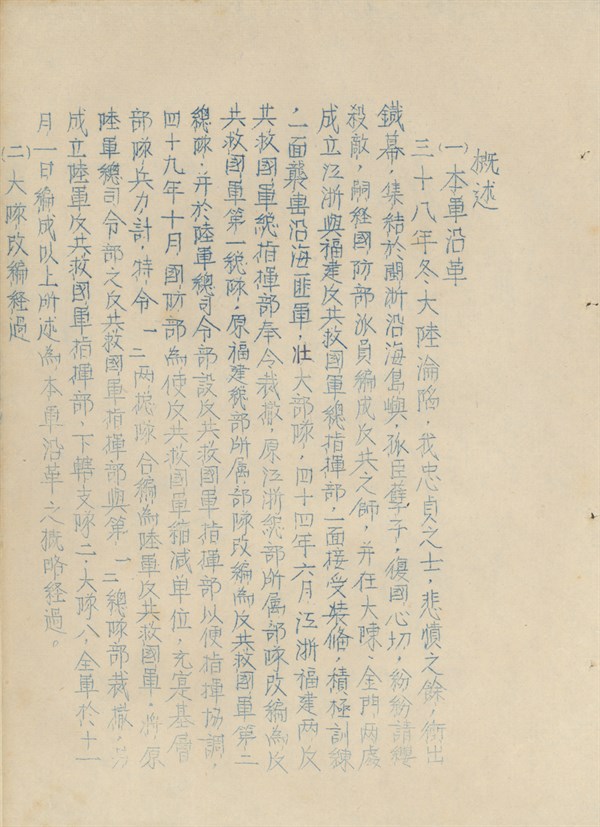 概述
(一)本軍沿革
三十八年冬、大陸淪陷，我忠貞之士，悲憤之餘，衝出
鐵幕，集結於閩浙沿海島嶼，孤臣孽子，復國心切，紛紛請纓
殺敵，嗣経國防部派員編成反共之師，并在大陳、金門两處
成立江浙與福建反共救國軍總指揮部，一面接受裝備，積極訓練
，一面襲擊沿海匪軍，壯大部隊，四十四年六月江浙福建两反
共救國軍總指揮部奉令裁撤，原江浙總部所属部隊改編為反
共救國軍第一總隊，原福建總部所属部隊改編為反共救國軍第二
總隊，并於陸軍總司令部設反共救國軍指揮部以便指揮協調，
四十九年十月國防部為使反共救國軍縮減单位，充寔基層
部隊兵力計，特令一二两總隊合編為陸軍反共救國軍，將原
陸軍總司令部之反共救國軍指揮部與第一二總隊部裁撤，另
成立陸軍反共救國軍指揮部、下轄支隊二，大隊八，全軍於十一
月一日編成以上所述為本軍沿革之概略経過。
(二)大隊改編経過